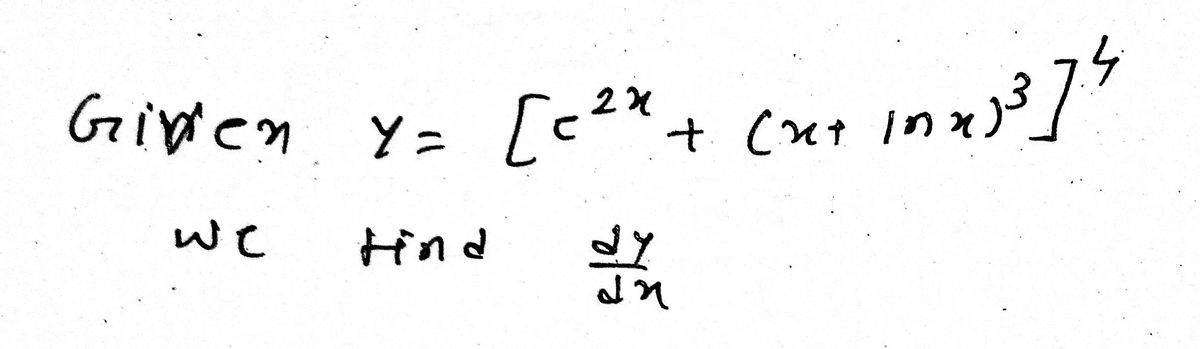 Given y = [e^{2x} + (x + ln x)^3]^4
we find dy/dx